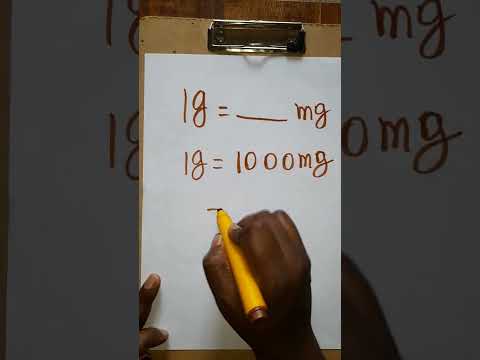 1g = ___ mg
1g = 1000mg